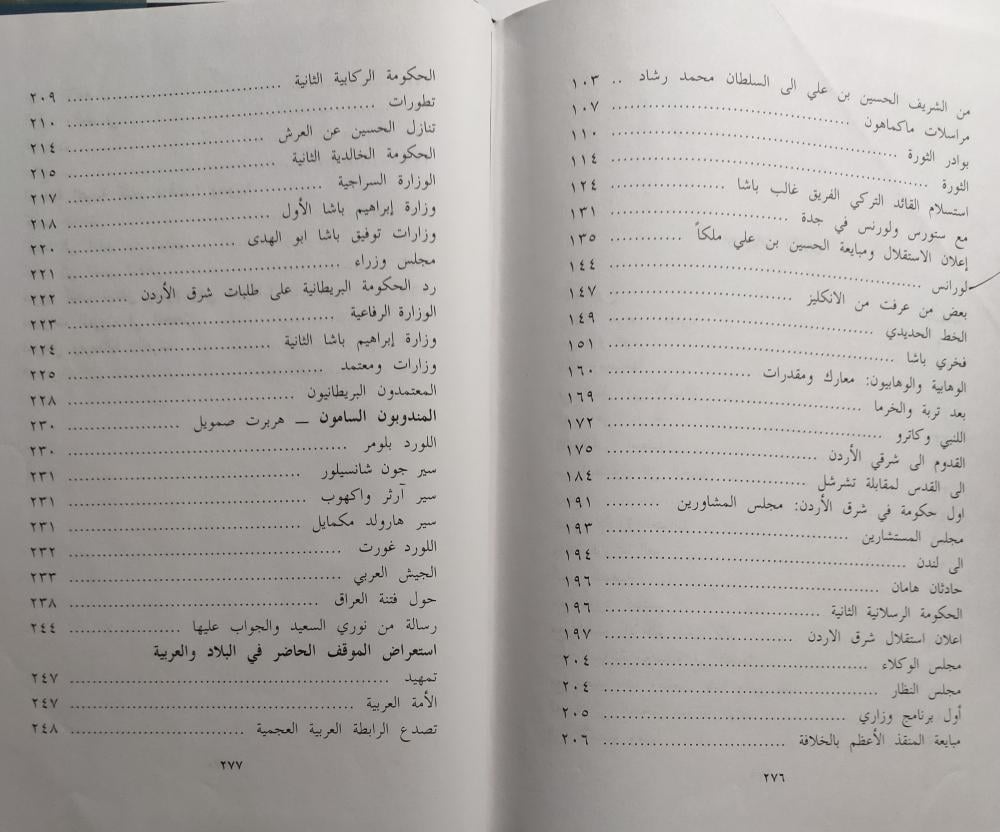 من الشريف الحسين بن علي الى السلطان محمد رشاد .. ١٠٣
مراسلات ماكماهون .......... ١٠٧
بوادر الثورة .......... ١١٠
الثورة .......... ١١٤
استسلام القائد التركي الفريق غالب باشا .......... ١٢٤
مع ستورس ولورنس في جدة .......... ١٣١
إعلان الاستقلال ومبايعة الحسين بن علي ملكاً .......... ١٣٥
لورانس .......... ١٤٤
بعض من عرفت من الانكليز .......... ١٤٧
الخط الحديدي .......... ١٤٩
فخري باشا .......... ١٥١
الوهابية والوهابيون: معارك ومقدرات .......... ١٦٠
بعد تربة والخرما .......... ١٦٩
اللنبي وكاترو .......... ١٧٢
القدوم الى شرقي الأردن .......... ١٧٥
الى القدس لمقابلة تشرشل .......... ١٨٤
اول حكومة في شرق الأردن: مجلس المشاورين .......... ١٩١
مجلس المستشارين .......... ١٩٣
الى لندن .......... ١٩٤
حادثان هامان .......... ١٩٦
الحكومة الرسلانية الثانية .......... ١٩٦
اعلان استقلال شرق الاردن .......... ١٩٧
مجلس الوكلاء .......... ٢٠٤
مجلس النظار .......... ٢٠٤
أول برنامج وزاري .......... ٢٠٥
مبايعة المنقذ الأعظم بالخلافة .......... ٢٠٦
٢٧٦
الحكومة الركابية الثانية .......... ٢٠٩
تطورات .......... ٢١٠
تنازل الحسين عن العرش .......... ٢١٤
الحكومة الخالدية الثانية .......... ٢١٥
الوزارة السراجية .......... ٢١٧
وزارة إبراهيم باشا الأول .......... ٢١٨
وزارات توفيق باشا ابو الهدى .......... ٢٢٠
مجلس وزراء .......... ٢٢١
رد الحكومة البريطانية على طلبات شرق الأردن .......... ٢٢٢
الوزارة الرفاعية .......... ٢٢٣
وزارة إبراهيم باشا الثانية .......... ٢٢٤
وزارات ومعتمد .......... ٢٢٥
المعتمدون البريطانيون .......... ٢٢٨
المندوبون السامون ــ هربرت صمويل .......... ٢٣٠
اللورد بلومر .......... ٢٣٠
سير جون شانسيلور .......... ٢٣١
سير آرثر واكهوب .......... ٢٣١
سير هارولد مكمايل .......... ٢٣١
اللورد غورت .......... ٢٣٢
الجيش العربي .......... ٢٣٣
حول فتنة العراق .......... ٢٣٨
رسالة من نوري السعيد والجواب عليها .......... ٢٤٤
استعراض الموقف الحاضر في البلاد والعربية
تمهيد .......... ٢٤٧
الأمة العربية .......... ٢٤٧
تصدع الرابطة العربية العجمية .......... ٢٤٨
٢٧٧